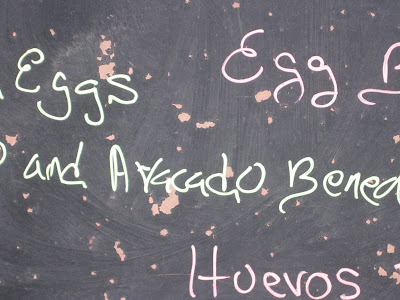 Eggs Egg B
and Avacado Bened
Huevos